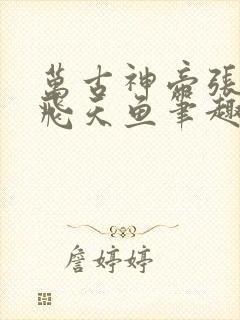 萬古神帝張
飛天魚筆趣
詹婷婷